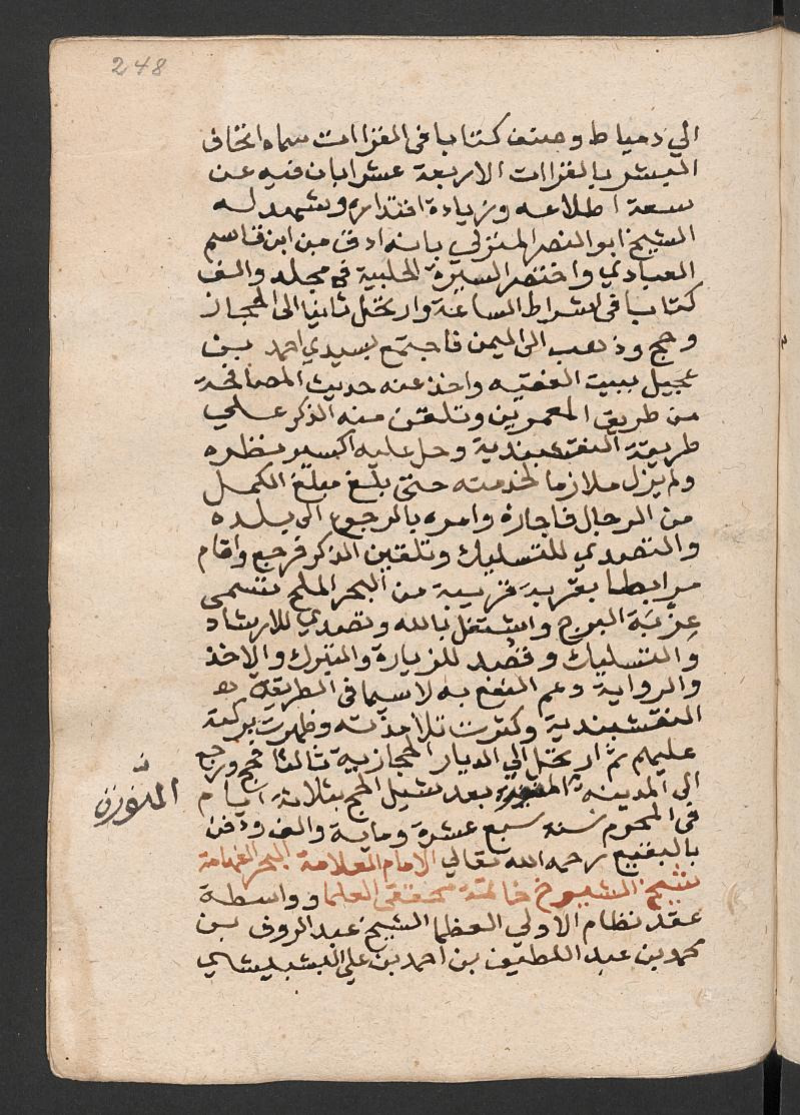 248
الي دمياط وصنف كتابا في القراات سماه اتحاف
البشر بالقراات الاربعة عشر ابان فيه عن
سعة اطلاعه وزيادة اقتداره وشهد له
الشيخ ابو النصر المنزلي بانه ادق من ابن قاسم
العبادي واختصر السيرة الحلبية في مجلد والف
كتابا في اشراط الساعة وارتحل ثانيا الى الحجاز
وحج وذهب الى اليمن فاجتمع بسيدي احمد بن
عجيل ببيت الفقيه واخذ عنه حديث المصافحة
من طريق المعمرين وتلقن منه الذكر علي
طريقة النقشبندية وحل عليه اكسير نظره
ولم يزل ملازما لخدمته حتى بلغ مبلغ الكمل
من الرجال فاجازه وامره بالرجوع الى بلده
والتصدي للتسليك وتلقين الذكر فرجع واقام
مرابطا بقرية قريبة من البحر الملح تسمى
عزبة البرج واشتغل بالله وتصدي للارشاد
والتسليك وقصد للزيارة والتبرك والاخذ
والرواية وعم النفع به لاسيما في الطريقة
النقشبندية وكثرت تلامذته وظهرت بركته
عليهم ثم ارتحل الي الديار الحجازية ثالثا فحج ورجع
الى المدينة المنورة بعد شيل الحج بثلاثة ايام
المنّورة
في المحرم سنة سبع عشرة وماية والف ودفن
بالبقيع رحمه الله تعالي الامام العلامة البحر الفهامة
شيخ الشيوخ خاتمة محققي العلما وواسطة
عقد نظام الاولي العظما الشيخ عبد الروف بن
محمد بن عبد اللطيف بن احمد بن علي البشبيشي